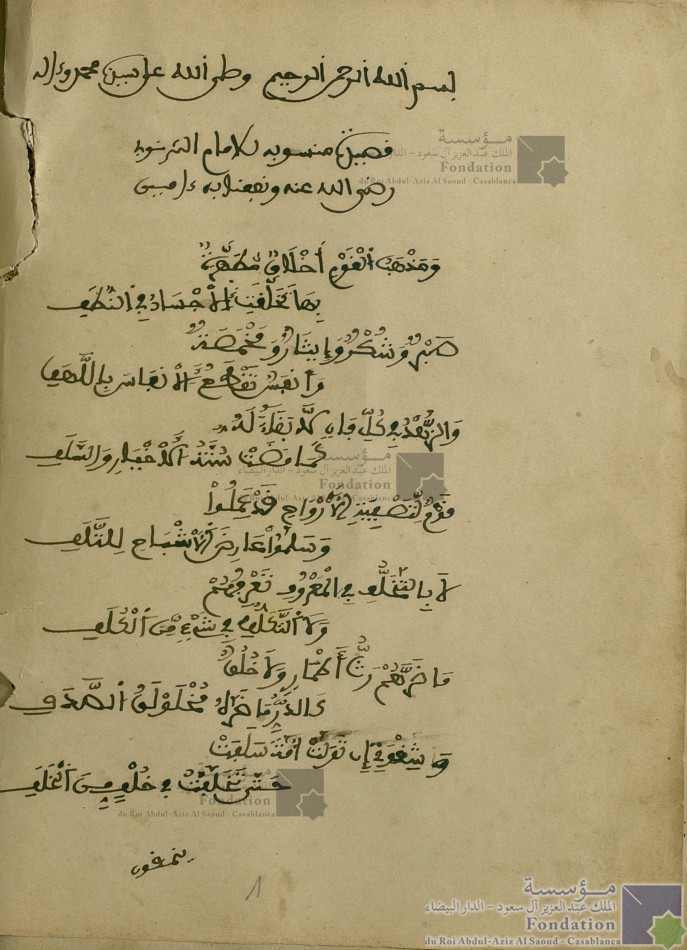 بسم الله الرحمن الرحيم وصلى الله على نبينا محمد وءاله
قصيدة منسوبه للامام الششتري
رضي الله عنه ونفعنا به ءامين
وَمَذْهَبُ الْقَوْمِ أَخْلَاقٌ مُطَهَّرَةٌ
بِهَا تَخَلَّقَتِ الْأَجْسَادُ فِي النُّطَفِ
صَبْرٌ وَشُكْرٌ وَإِيثَارٌ وَمَخْمَصَةٌ
وَأَنْفُسٌ تَقْطَعُ الْأَنْفَاسَ بِاللَّهَفِ
وَالزُّهْدُ فِي كُلِّ فَانٍ لَا بَقَاءَ لَهُ
كَمَا مَضَتْ سُنَّةُ الْأَخْيَارِ وَالسَّلَفِ
قَوْمٌ لِتَصْفِيَةِ الْأَرْوَاحِ قَدْ عَمِلُوا
وَسَلَّمُوا عَارِضَ الْأَشْبَاحِ لِلتَّلَفِ
لَا بِالتَّخَلُّفِ فِي الْمَعْرُوفِ تَعْرِفُهُمْ
وَلَا التَّكَلُّفِ فِي شَيْءٍ مِنَ الْكُلَفِ
مَا ضَرَّهُمْ رَثُّ أَطْمَارٍ وَلَا خُلُقٌ
كَالدُّرِّ مَا ضَرَّهُ مُخْلَوْلَقُ الصَّدَفِ
وَا شِقْوَتِي إِن تَوَلَّتْ أُمَّةٌ سَلَفَتْ
حَتَّى تَخَلَّفْتُ فِي خُلْفٍ مِنَ الْخَلَفِ
1
مؤسسة
الملك عبد العزيز آل سعود - الدار البيضاء
Fondation
du Roi Abdul-Aziz Al Saoud - Casablanca